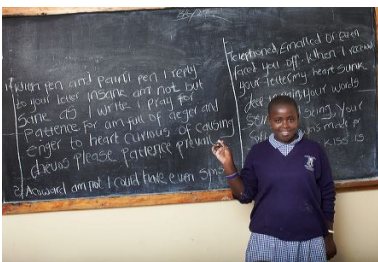 When pen and paint pen I rerly
to your letter insane am not but
Sane as I write I pray for
Patience for am full of aeger and
enger to heart curious of causing
chevos please patience prevail
2) Acoward am not I could have even
telephoned, Emailed or even
faced you off. When I receive
your letter my heart Sunk
deep your words
Still Your
made
kiss is